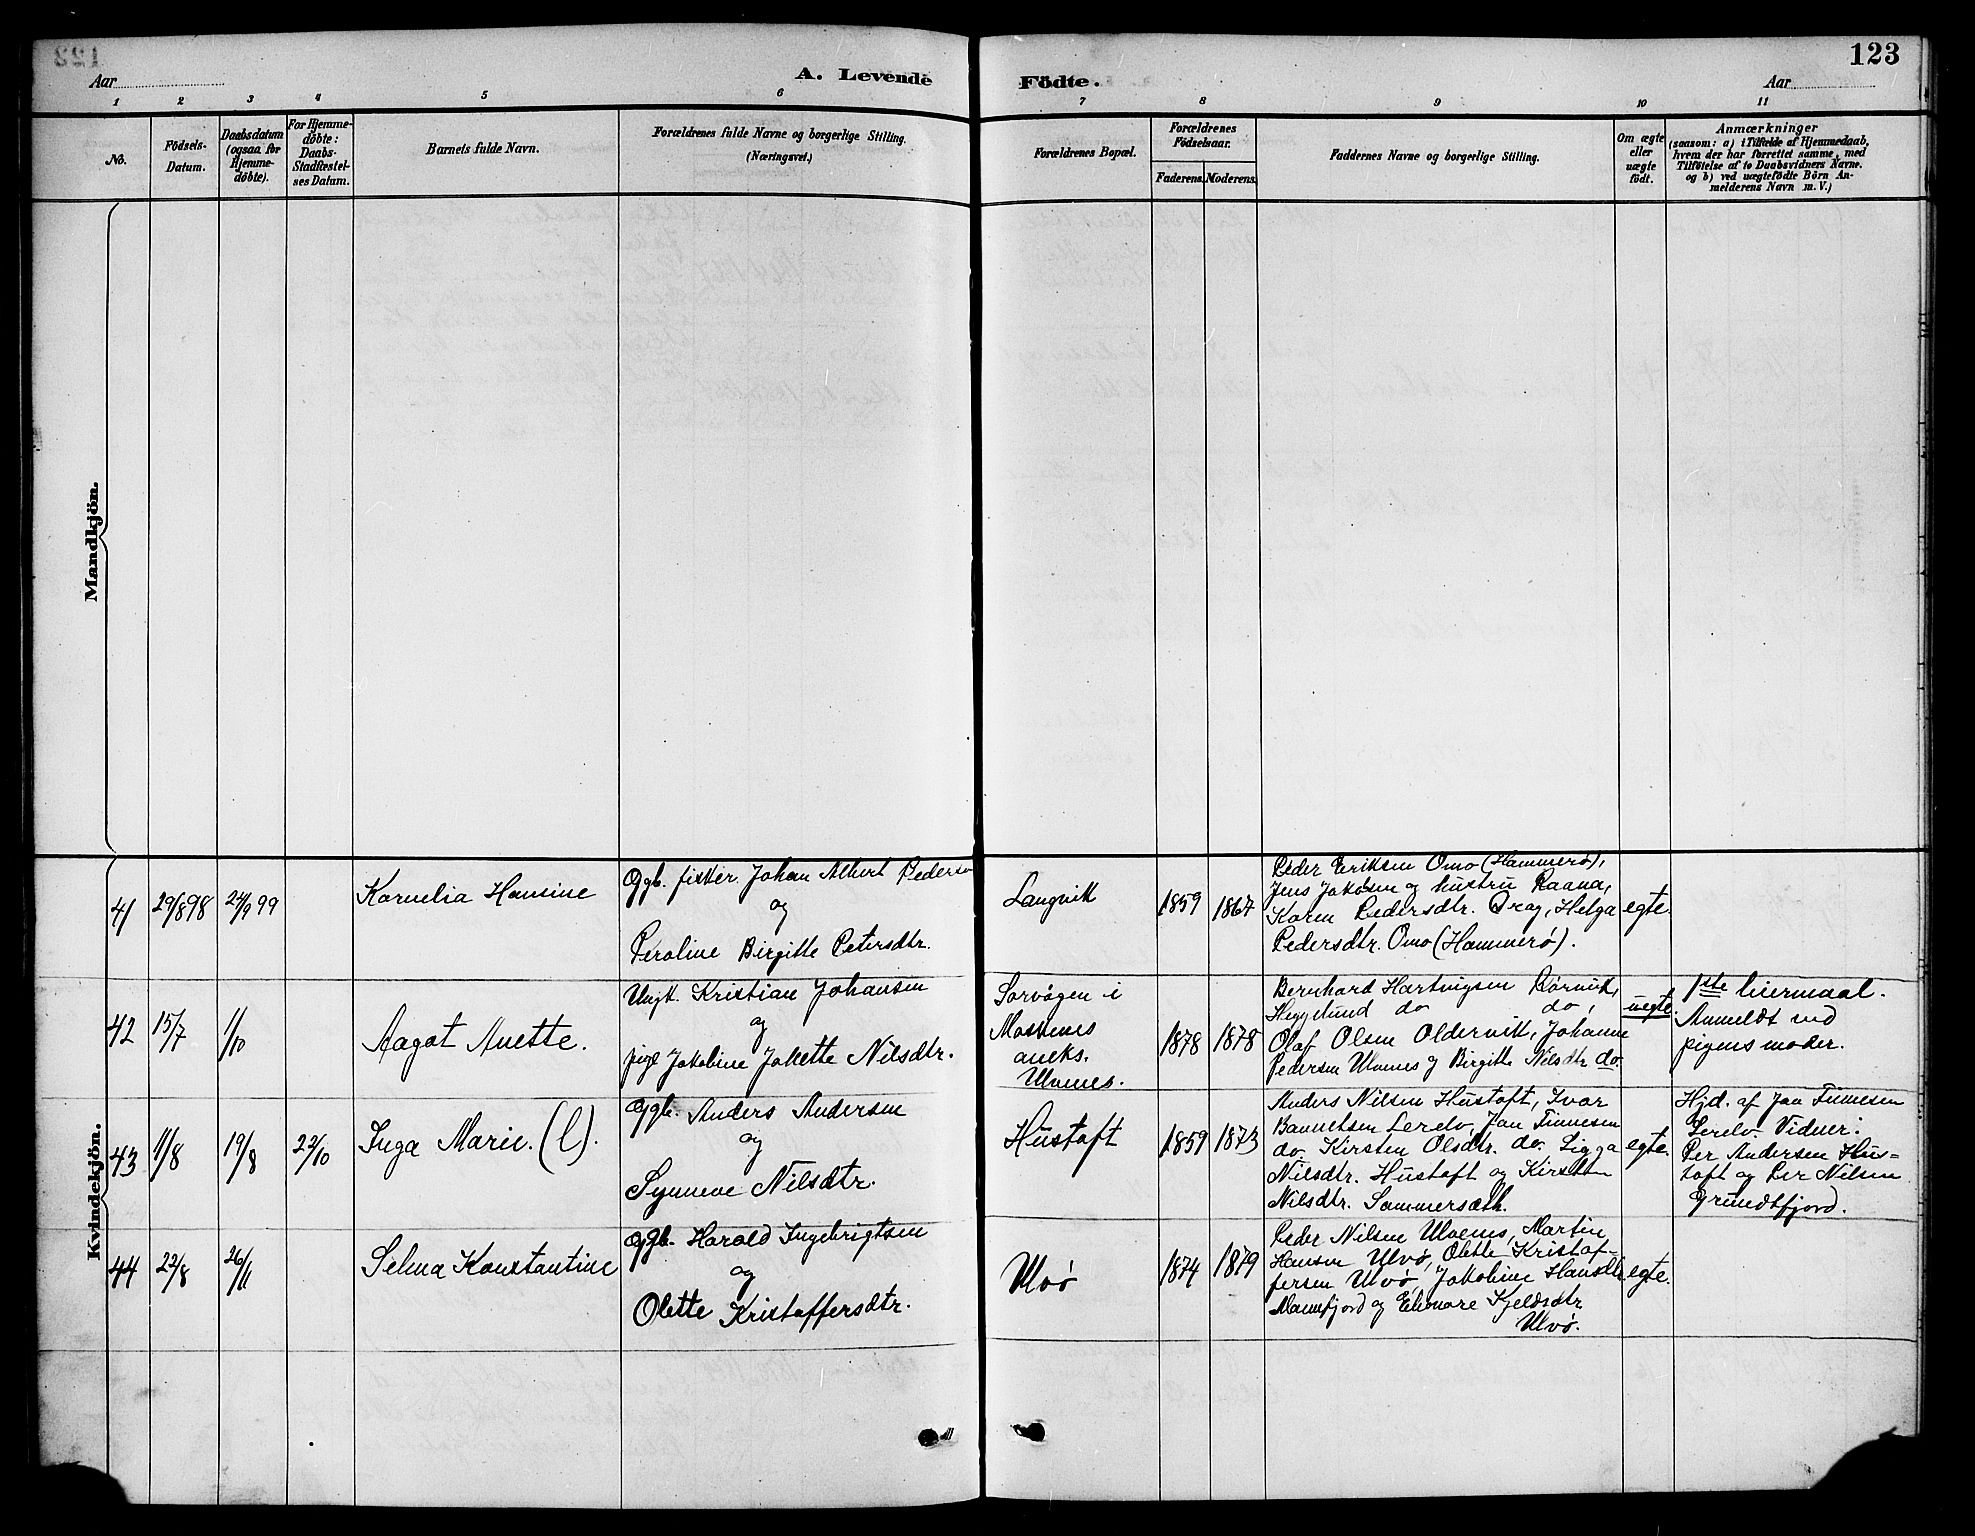 123
Aar
A. Levende
Födte.
Aar
1 2 3 4 5 6 7 8 9 10 11
No.
Födsels-
Datum.
Daabsdatum
(ogsaa for
Hjemme-
döbte).
For Hjemme-
döbte:
Daabs-
Stadfæstel-
ses Datum.
Barnets fulde Navn.
Forældrenes fulde Navne og borgerlige Stilling.
(Næringsvei.)
Forældrenes Bopæl.
Forældrenes
Födselsaar.
Faderens. Moderens.
Faddernes Navne og borgerlige Stilling.
Om ægte
eller
uægte
födt.
Anmærkninger
(saasom: a) i Tilfælde af Hjemmedaab,
hvem der har forrettet samme, med
Tilföielse af to Daabsvidners Navne.
og b) ved uægtefödte Börn An-
melderens Navn m. V.)
Mandkjön.
Kvindekjön.
41
29/8 98
24/9 99
Kornelia Hansine
Ggb. fisker. Johan Albert Pedersen
og
Peroline Birgitte Petersdtr.
Langvik
1859
1867
Peder Eriksen Omo (Hammerø),
Jens Jakobsen og hustru Raana,
Karen Pedersdtr. Drag, Helga
Pedersdtr. Omo (Hammerø).
egte.
42
15/7
1/10
Aagot Anette.
Ungk. Kristian Johansen
og
pige Jakobine Jakette Nilsdtr.
Sørvågen i
Moskenes
aneks.
Ulvenes.
1878
1878
Bernhard Hartvigsen Rørvik,
Heggelund do do,
Olaf Olsen Oldervik, Johanne
Pedersen Ulvenes og Birgitte Nilsdtr do.
uegte.
1ste leiermaal.
Anmeldt ved
pigens moder.
43
11/8
19/8
22/10
Inga Marie. (l).
Ggb. Anders Andersen
og
Synneve Nilsdtr.
Hustoft
1859
1873
Anders Nilsen Hustoft, Ivar
Lerelv, Jan Finnesen
do. Kirsten Olsdtr. do. Sigga
Nilsdtr. Hustoft og Kirsten
Nilsdtr. Sommersæth.
egte.
Hjd. af Jan Finnesen
Lerelv. Vidner:
Per Andersen Hus-
toft og Per Nilsen
Grundtfjord.
44
22/8
26/11
Selma Konstantine
Ggb. Harald Ingebrigtsen
og
Olette Kristoffersdtr.
Ulvø
1874
1879
Peder Nilsen Ulvenes, Martin
Hansen Ulvø, Olette Kristof-
fersen Ulvø, Jakobine
Mannfjord og Elionore Kjeldsdtr
Ulvø.
egte.